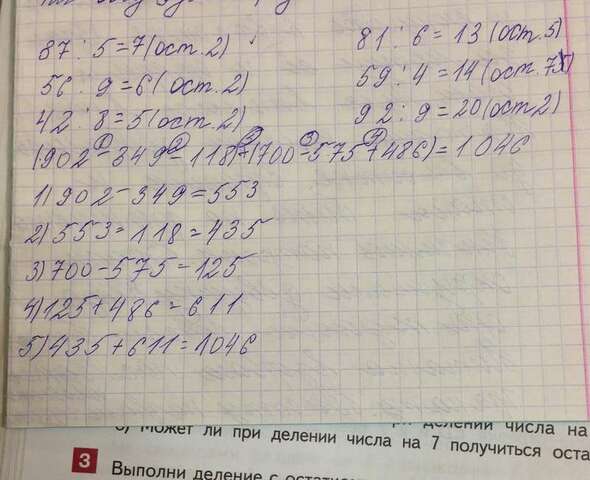 87 : 5 = 7 (ост. 2)
56 : 9 = 6 (ост. 2)
42 : 8 = 5 (ост. 2)
81 : 6 = 13 (ост. 5)
59 : 4 = 14 (ост.
92 : 9 = 20 (ост 2)
(902 - 349 - 118) + (700 - 575 + 486) = 1046
1) 902 - 349 = 553
2) 553 - 118 = 435
3) 700 - 575 = 125
4) 125 + 486 = 611
5) 435 + 611 = 1046
делении числа на
Может ли при делении числа на 7 получиться оста
3 Выполни деление с